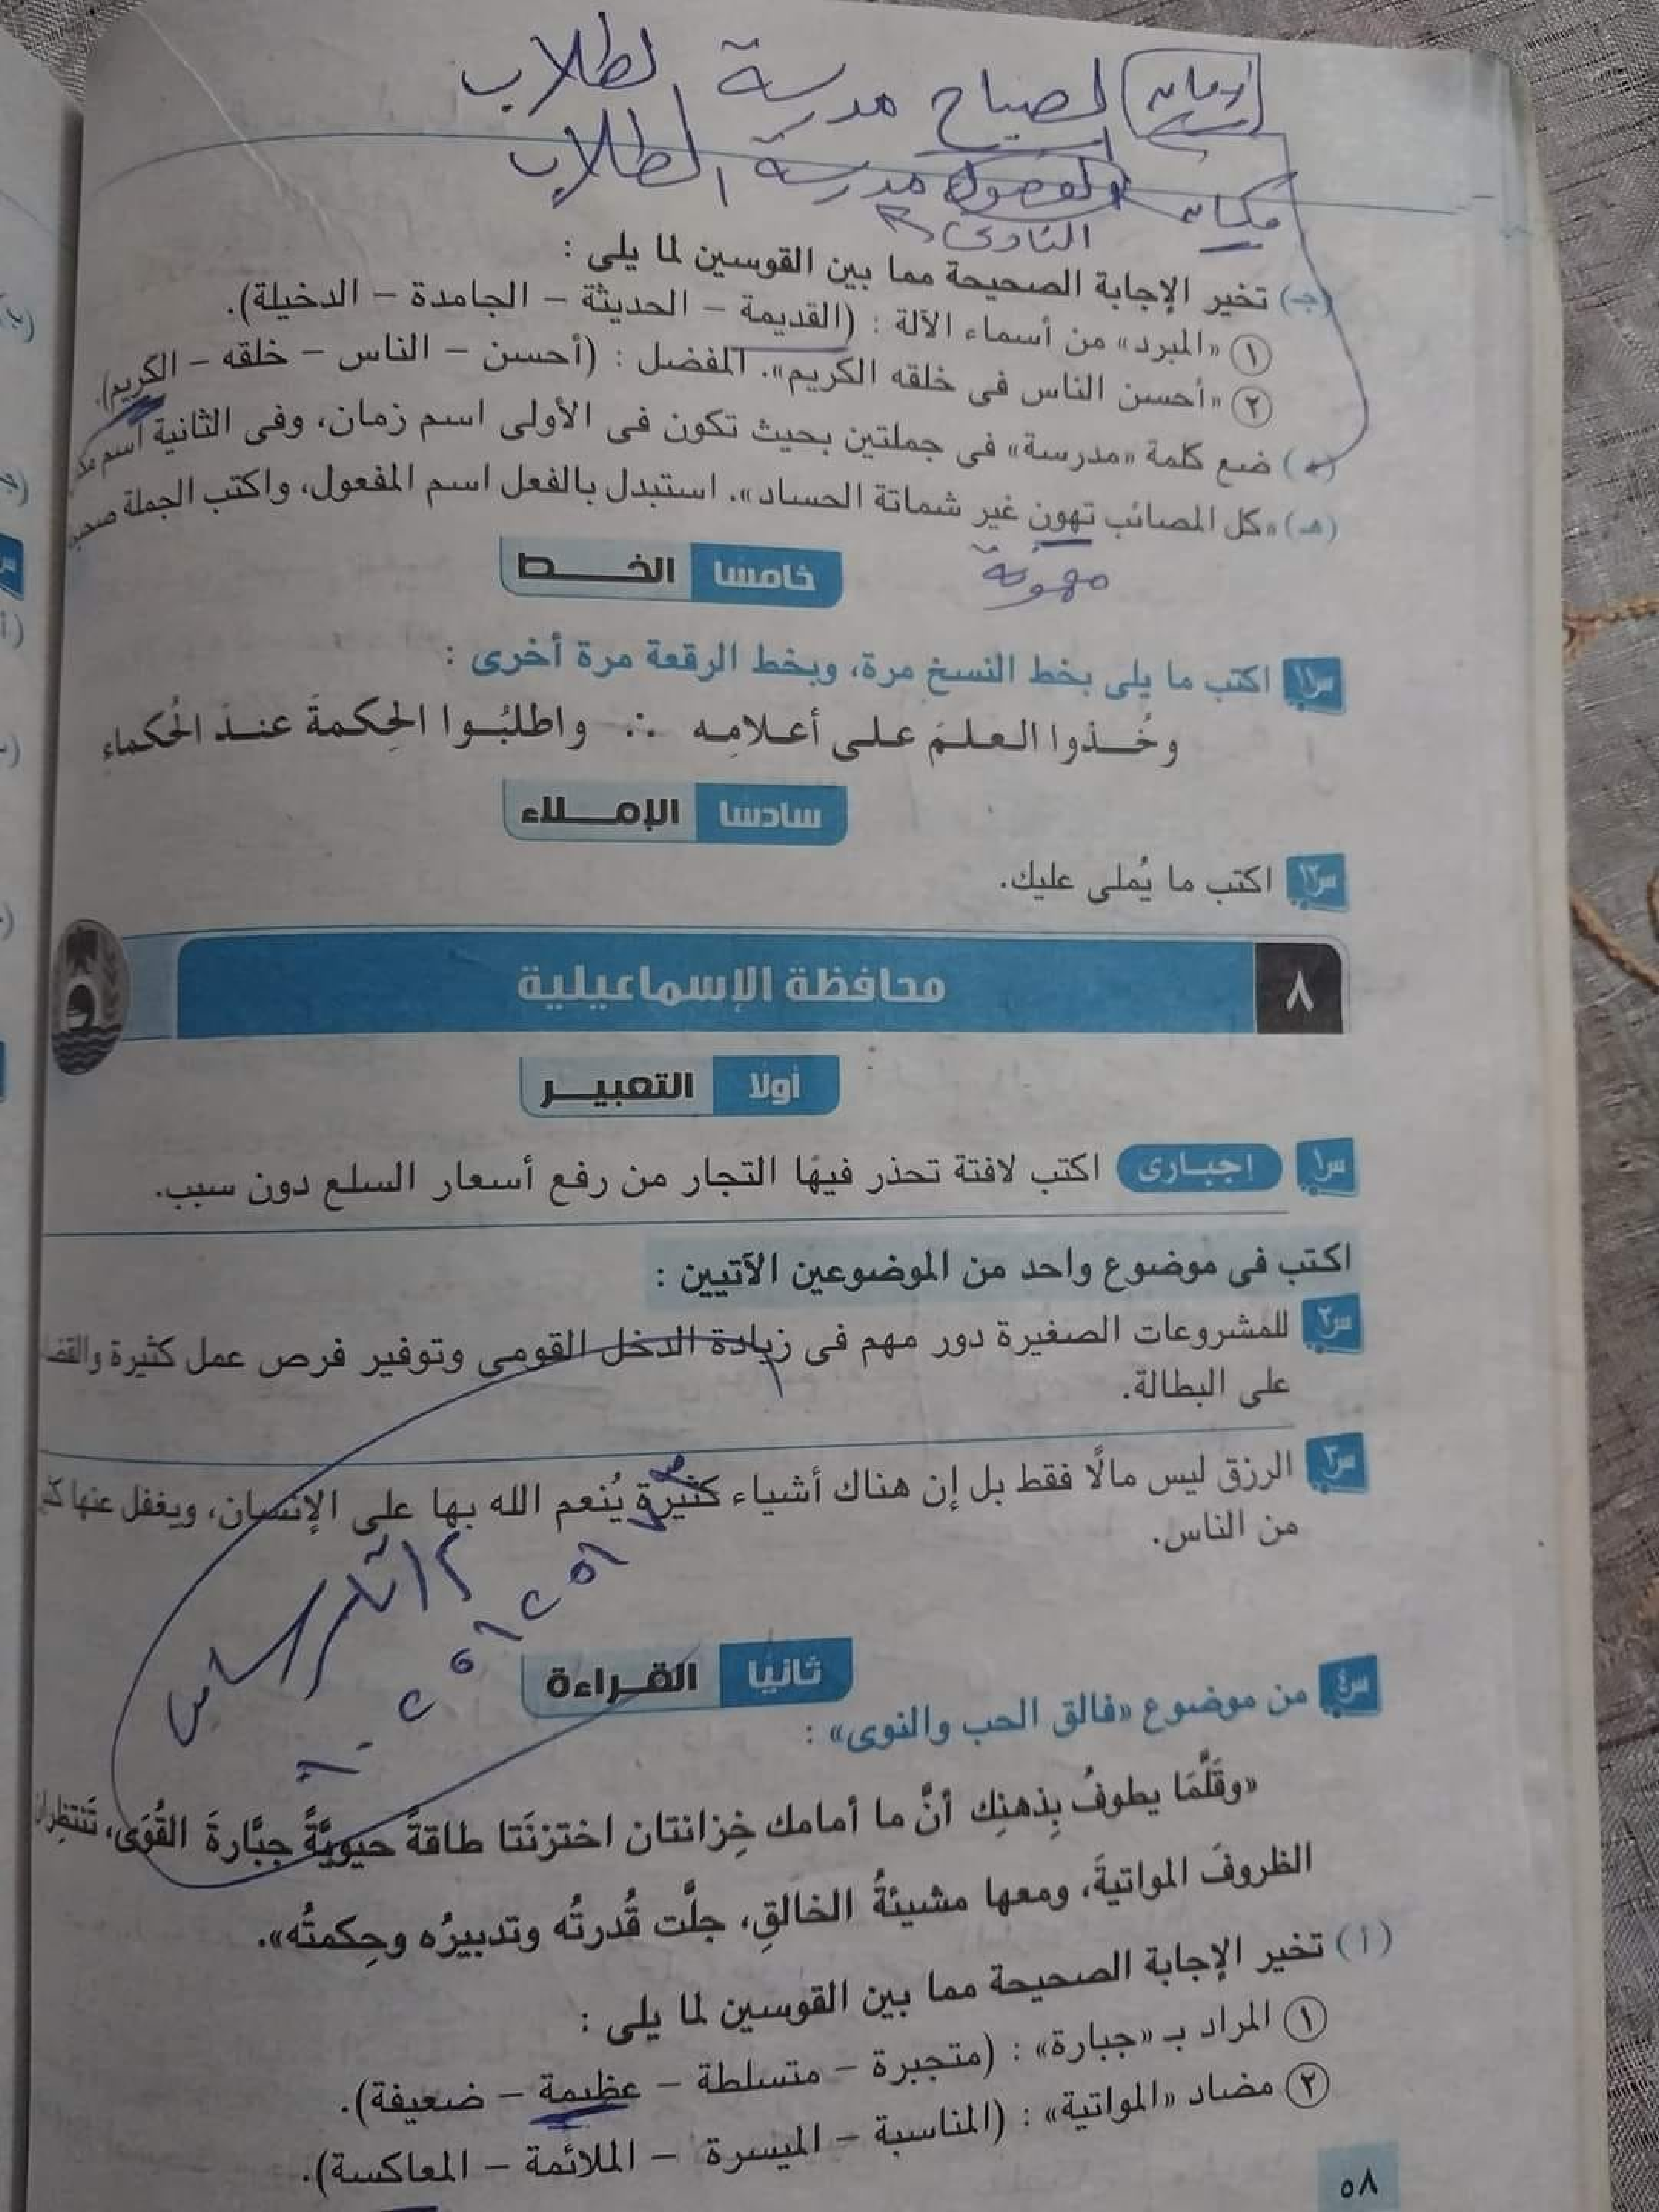 زمان الصباح مدرسة الطلاب
مكان الفصول مدرسة الطلاب
النادى
(جـ) تخير الإجابة الصحيحة مما بين القوسين لما يلى :
١ «المبرد» من أسماء الآلة : (القديمة – الحديثة – الجامدة – الدخيلة).
٢ «أحسن الناس فى خلقه الكريم». المفضل : (أحسن – الناس – خلقه – الكريم).
(د) ضع كلمة «مدرسة» فى جملتين بحيث تكون فى الأولى اسم زمان، وفى الثانية اسم
(هـ) «كل المصائب تهون غير شماتة الحساد». استبدل بالفعل اسم المفعول، واكتب الجملة
مهونة
خامسا الخـــط
س١١ اكتب ما يلى بخط النسخ مرة، وبخط الرقعة مرة أخرى :
وخُـذوا العـلمَ عـلـى أعـلامِـه ∴ واطلبُـوا الحِكمةَ عنـدَ الحُكماء
سادسا الإمـــلاء
س١٢ اكتب ما يُملى عليك.
٨ محافظة الإسماعيلية
أولا التعبيـــر
س١ إجبـارى اكتب لافتة تحذر فيها التجار من رفع أسعار السلع دون سبب.
اكتب فى موضوع واحد من الموضوعين الآتيين :
س٢ للمشروعات الصغيرة دور مهم فى زيادة الدخل القومى وتوفير فرص عمل كثيرة
على البطالة.
س٣ الرزق ليس مالًا فقط بل إن هناك أشياء كثيرة يُنعم الله بها على الإنسان، ويغفل عنها
من الناس.
ثانيا القـــراءة
س٤ من موضوع «فالق الحب والنوى» :
«وقَلَّمَا يطوفُ بِذهنِك أنَّ ما أمامك خِزانتان اختزنَتا طاقةً حيويَّةً جبَّارةَ القُوَى، تَنتظِران
الظروفَ المواتيةَ، ومعها مشيئةُ الخالقِ، جلَّت قُدرتُه وتدبيرُه وحِكمتُه».
(أ) تخير الإجابة الصحيحة مما بين القوسين لما يلى :
١ المراد بـ «جبارة» : (متجبرة – متسلطة – عظيمة – ضعيفة).
٢ مضاد «المواتية» : (المناسبة – الميسرة – الملائمة – المعاكسة).
٥٨